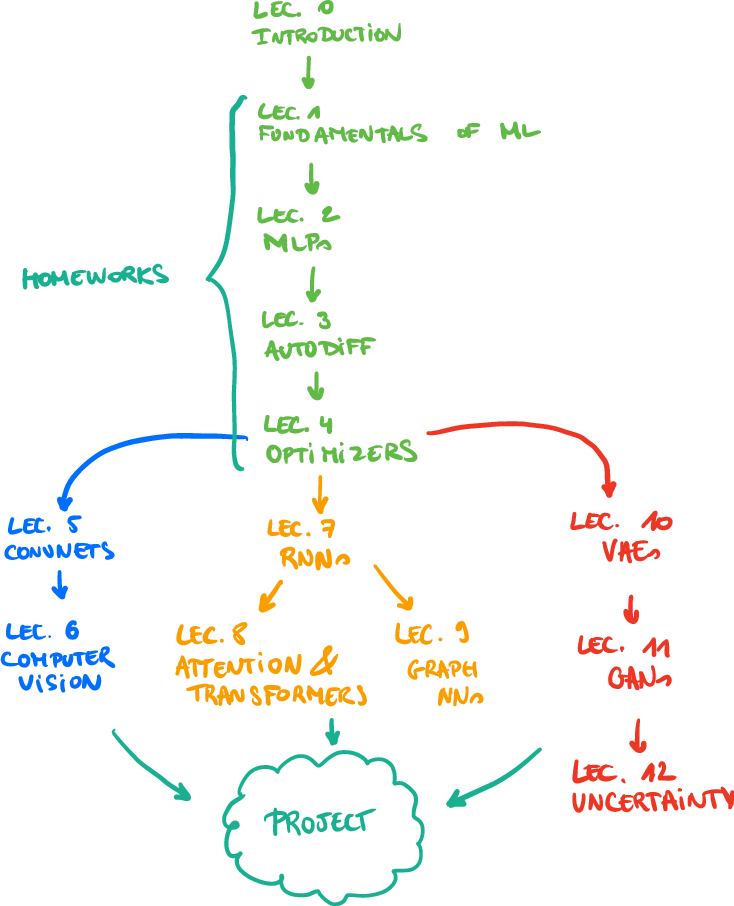 LEC. 0
INTRODUCTION
LEC. 1
FUNDAMENTALS OF ML
LEC. 2
MLPs
HOMEWORKS
LEC. 3
AUTODIFF
LEC. 4
OPTIMIZERS
LEC. 5
CONVNETS
LEC. 6
COMPUTER
VISION
LEC. 7
RNNs
LEC. 8
ATTENTION &
TRANSFORMERS
LEC. 9
GRAPH
NNs
LEC. 10
VAEs
LEC. 11
GANs
LEC. 12
UNCERTAINTY
PROJECT